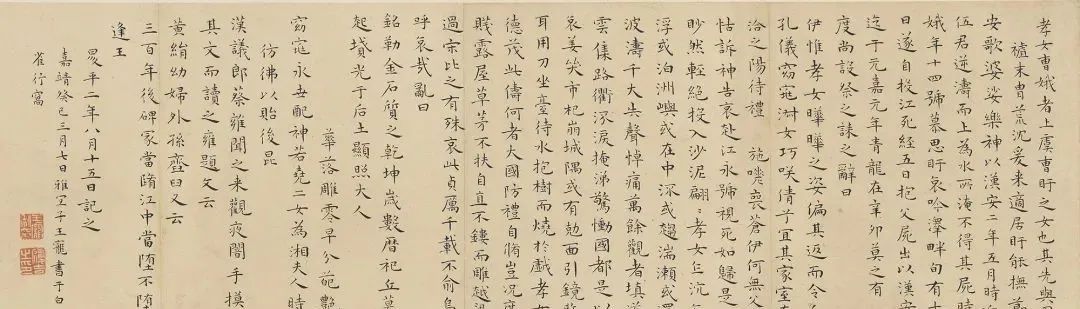 孝女曹娥者上虞曹盱之女也其先與
末胄荒沉爰来適居盱能撫節
安歌婆娑樂神以漢安二年五月時
伍君逆濤而上為水所淹不得其屍時
娥年十四號慕思盱哀吟澤畔旬有
日遂自投江死經五日抱父屍出以漢安
迄于元嘉元年青龍在辛卯莫之有
度尚設祭之誄之辭曰
伊惟孝女曄曄之姿偏其返而令
孔儀窈窕淑女巧咲倩兮宜其家室
洽之陽待禮 施嗟喪蒼伊何無父
怙訴神告哀赴江永號視死如歸是
眇然輕絕投入沙泥翩〻孝女乍沉
浮或泊洲嶼或在中流或趨湍瀨或還
波濤千夫失聲悼痛萬餘觀者填道
雲集路衢流淚掩涕驚慟國都是以
哀姜哭市杞崩城隅或有勉面引鏡
耳用刀坐臺待水抱樹而燒於戲孝女
德茂此儔何者大國防禮自脩豈况庶
賤露屋草茅不扶自直不鏤而雕越梁
過宋比之有殊哀此貞厲千載不渝烏
呼哀哉亂曰
銘勒金石質之乾坤歲數曆祀丘墓
起墳光于后土顯照天人
華落雕零早分葩艷
窈窕永世配神若堯二女為湘夫人時
彷彿以貽後昆
漢議郎蔡雍聞之来觀夜闇手摸
其文而讀之雍題文云
黃絹幼婦外孫齏臼又云
三百年後碑冢當墮江中當墮不墮
逢王
昇平二年八月十五日記之
嘉靖癸巳三月七日雅宜子王寵書于白
雀行窩